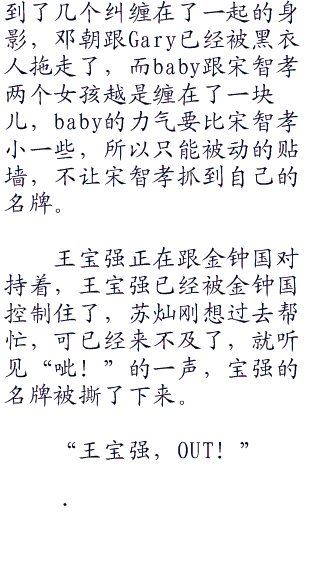 到了几个纠缠在了一起的身
影，邓朝跟Gary已经被黑衣
人拖走了，而baby跟宋智孝
两个女孩越是缠在了一块
儿，baby的力气要比宋智孝
小一些，所以只能被动的贴
墙，不让宋智孝抓到自己的
名牌。
王宝强正在跟金钟国对
持着，王宝强已经被金钟国
控制住了，苏灿刚想过去帮
忙，可已经来不及了，就听
见“呲！”的一声，宝强的
名牌被撕了下来。
“王宝强，OUT！”
.